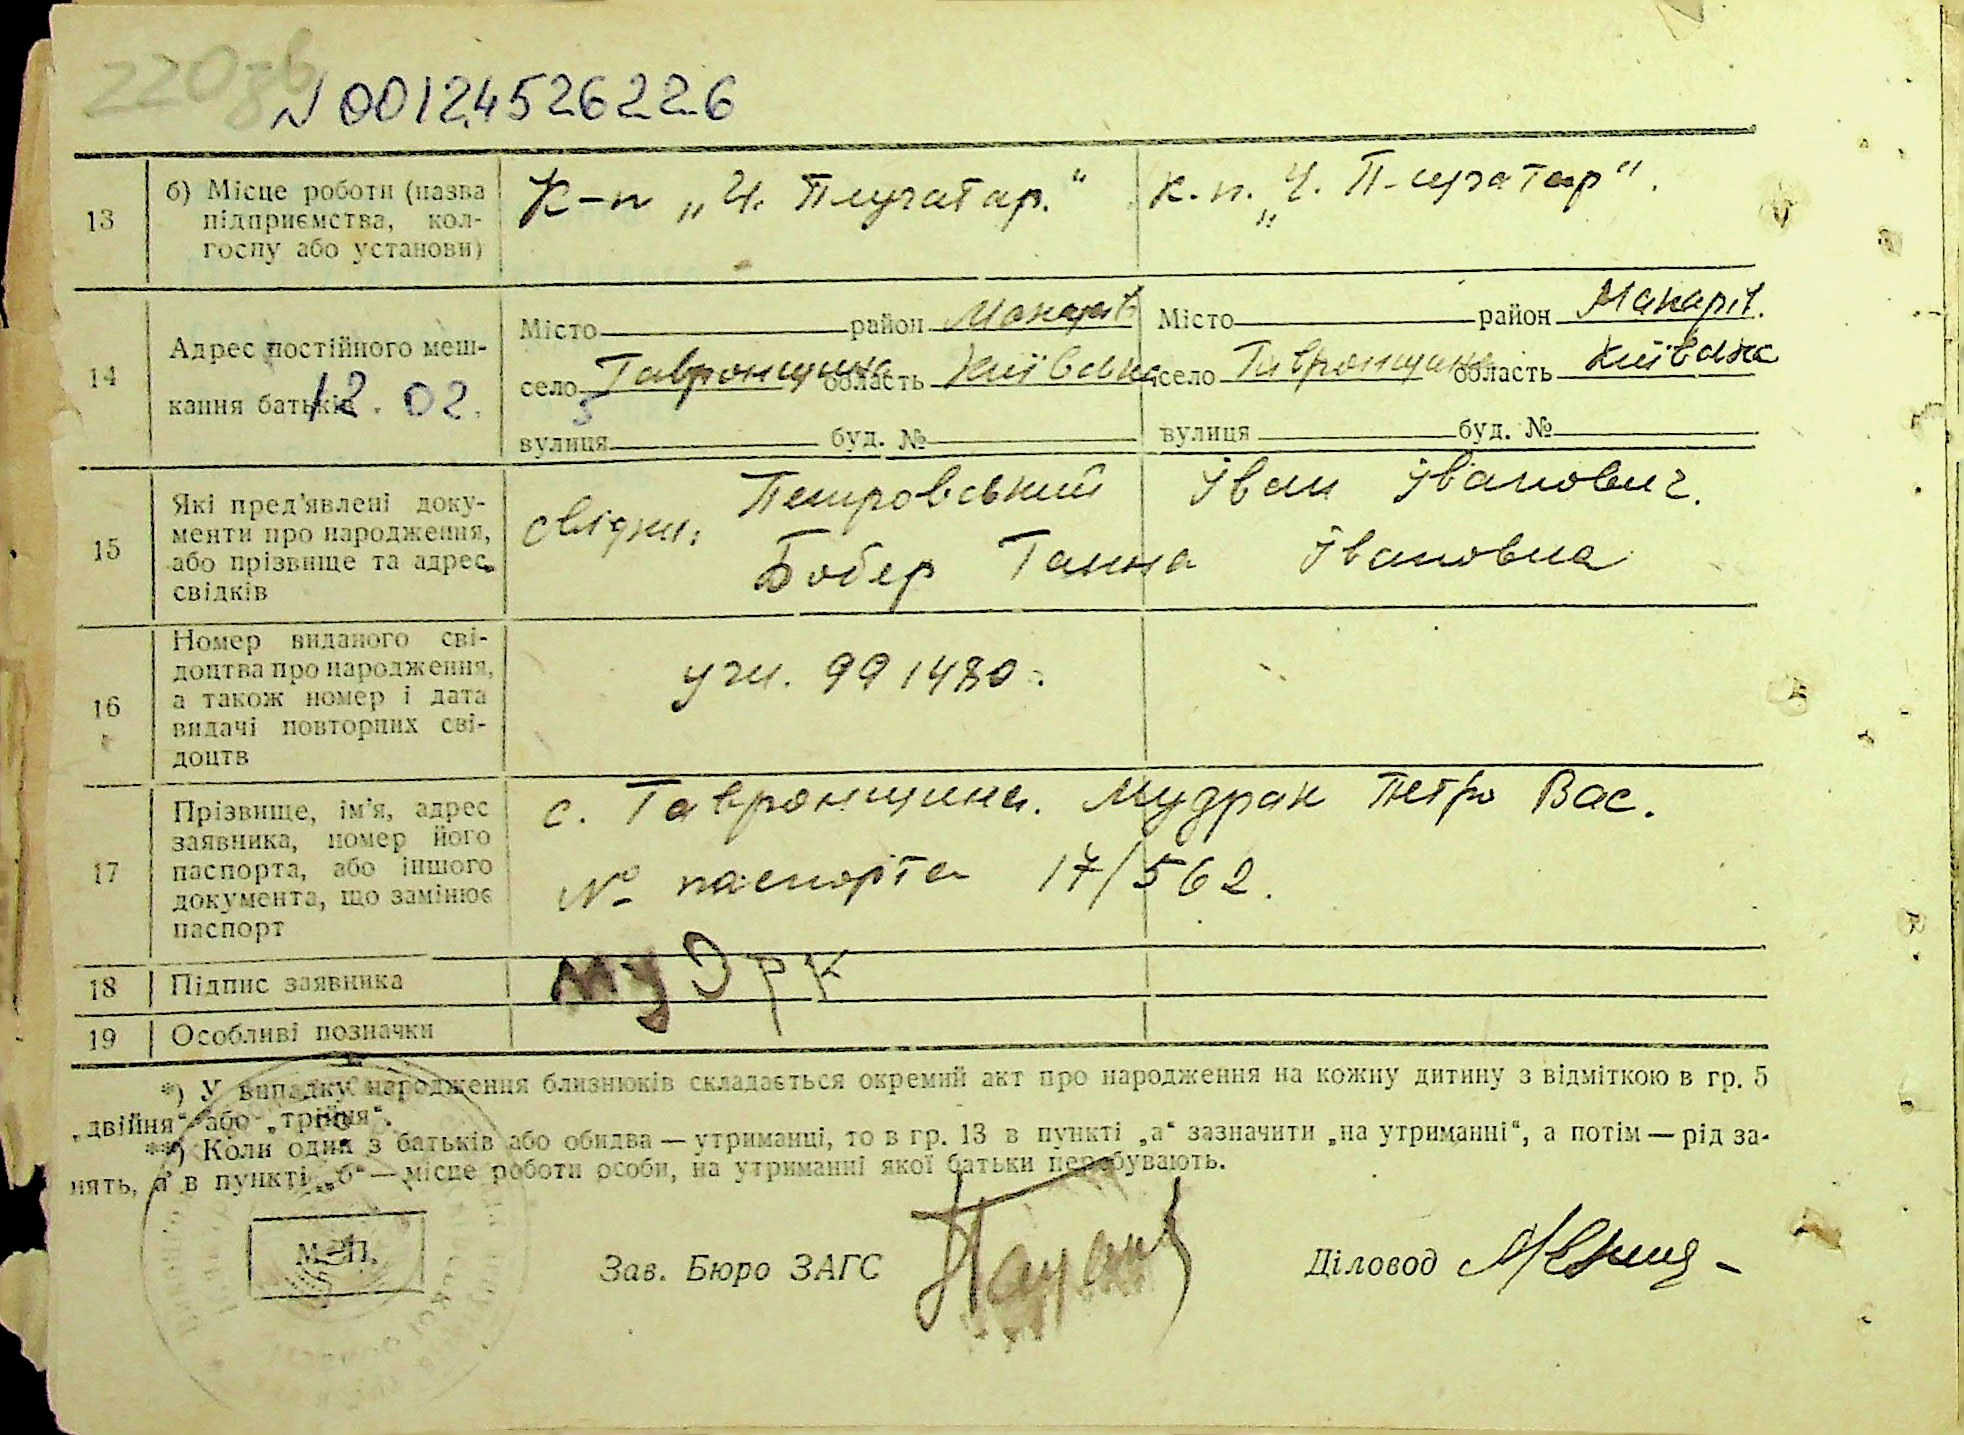 220зв
N 00124526226
13
б) Місце роботи (назва
підприємства, кол-
госпу або установи)
К-п „Ч. Плугатар."
к.п. „Ч. Плугатар".
14
Адрес постійного меш-
кання батьків
12.02.
Місто район Макарів
село Гавронщина область Київська
вулиця буд. №
Місто район Макарів.
село Гавронщина область Київська
вулиця буд. №
15
Які пред'явлені доку-
менти про народження,
або прізвище та адрес
свідків
свідки: Петровський Іван Іванович.
Бобер Ганна Івановна
16
Номер виданого сві-
доцтва про народження,
а також номер і дата
видачі повторних сві-
доцтв
991480.
17
Прізвище, ім'я, адрес
заявника, номер його
паспорта, або іншого
документа, що замінює
паспорт
с. Гавронщина. Мудрак Петро Вас.
№ паспорта 17/562.
18
Підпис заявника
Мудрк
19
Особливі позначки
*) У випадку народження близнюків складається окремий акт про народження на кожну дитину з відміткою в гр. 5
„двійня" або „трійня".
**) Коли один з батьків або обидва — утриманці, то в гр. 13 в пункті „а" зазначити „на утриманні", а потім — рід за-
нять, а в пункті „б" — місце роботи особи, на утриманні якої батьки перебувають.
М. П.
Зав. Бюро ЗАГС
Діловод